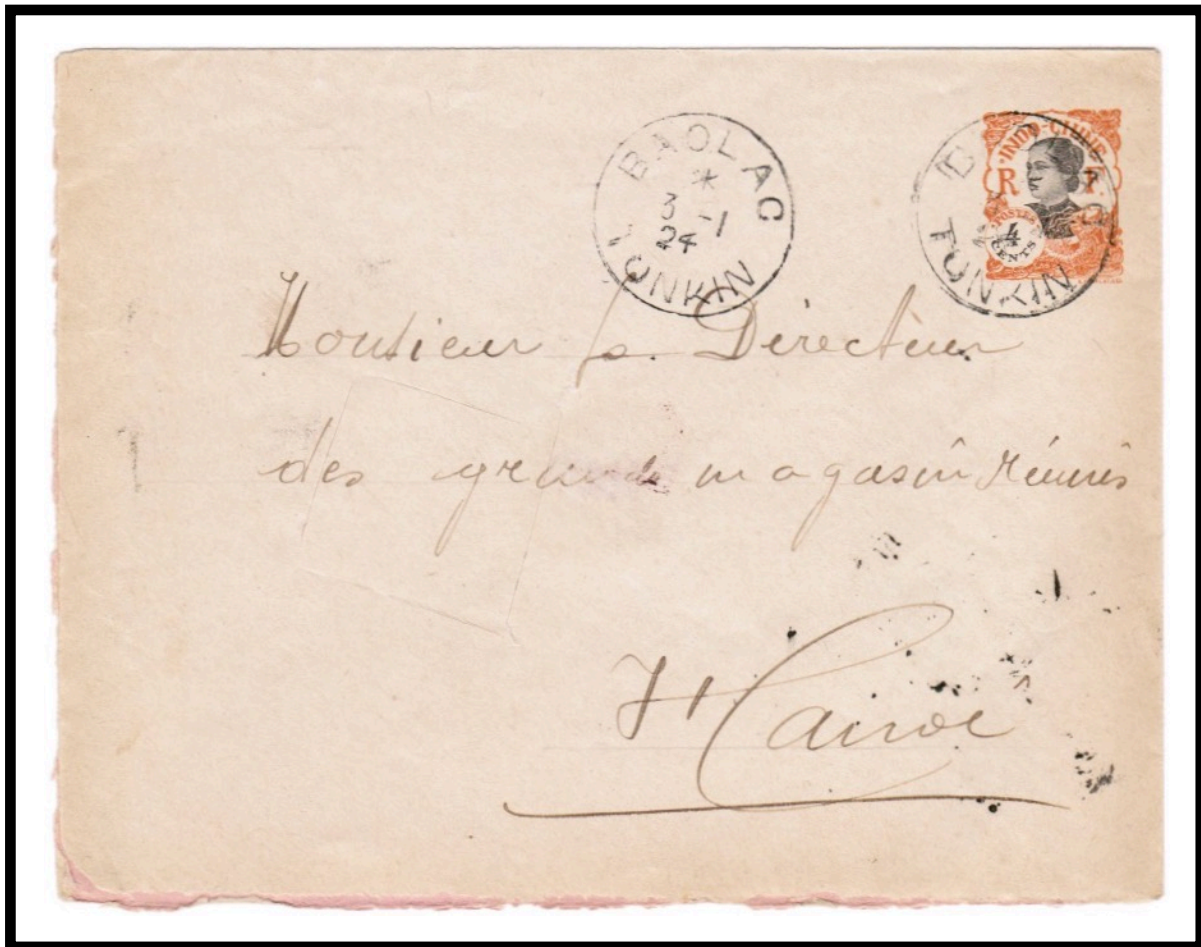 BAOLAC
*
3 -1
24
TONKIN
INDO-CHINE
R F
POSTES
4
CENTS
TONKIN
Monsieur le Directeur
des grands magasin réunis
Hanoi